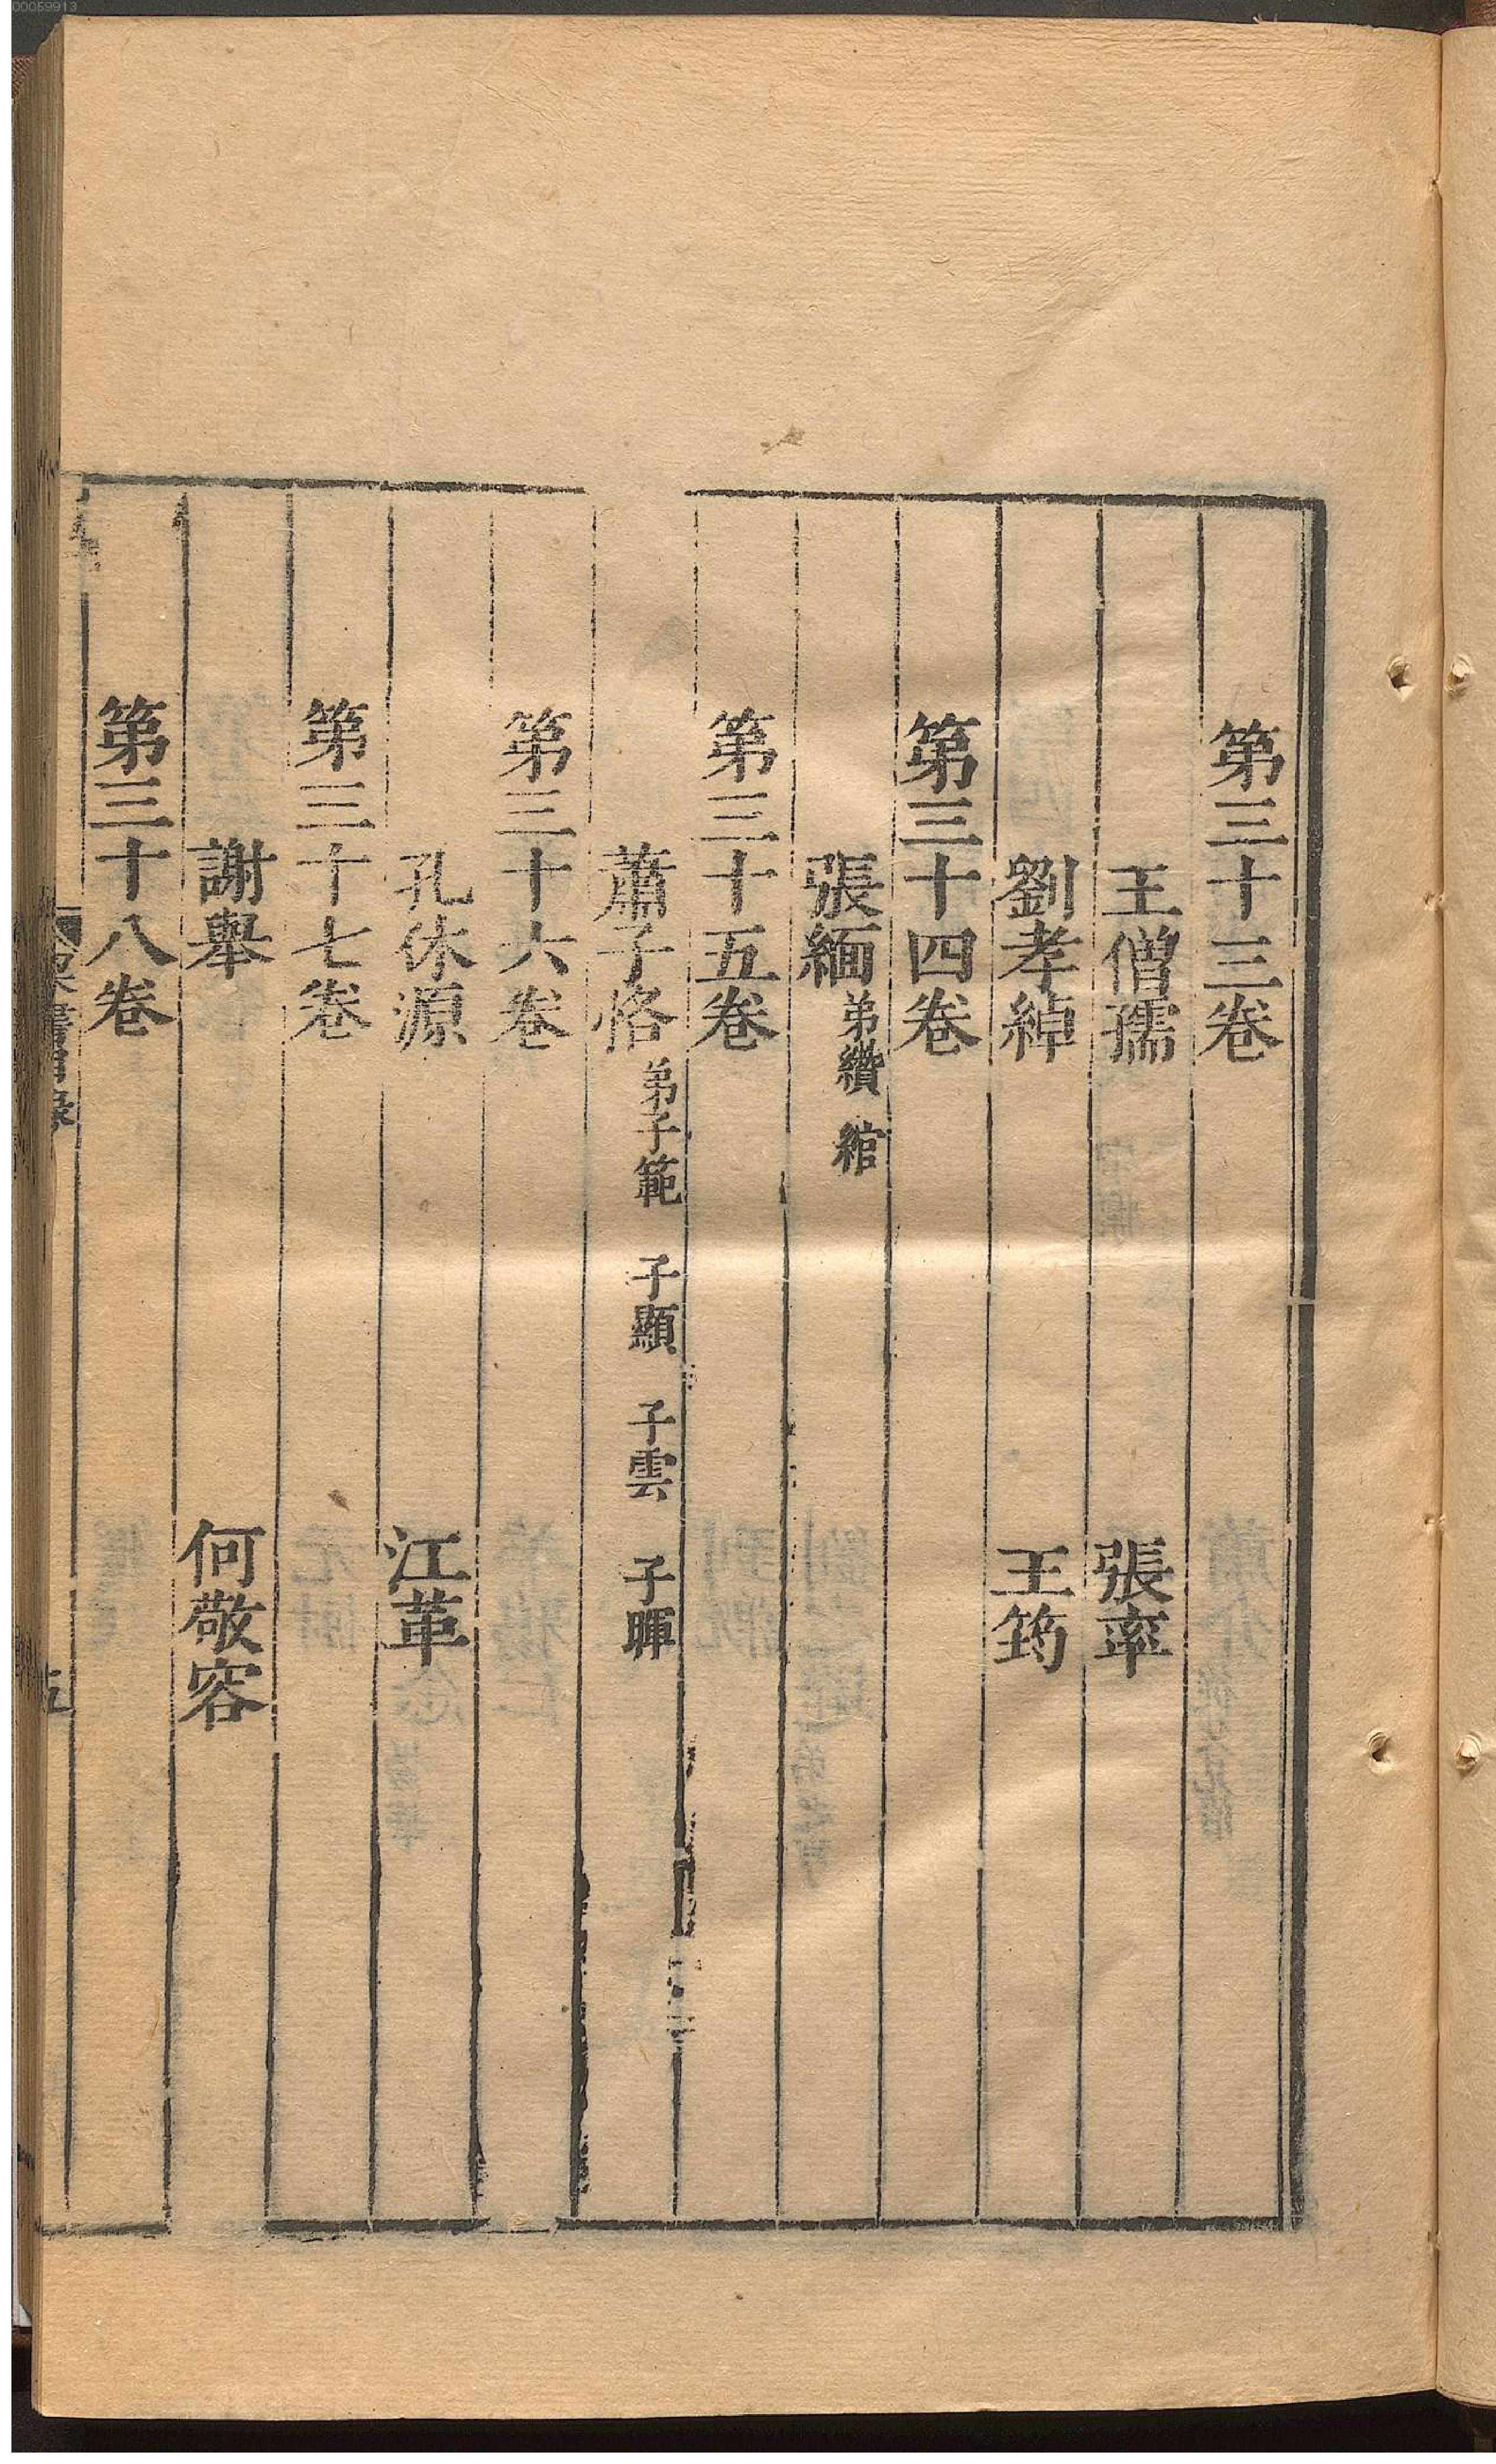 00059913
第三十三卷
王僧孺 張率
劉孝綽 王筠
第三十四卷
張緬 弟纘 綰
第三十五卷
蕭子恪 弟子範 子顯 子雲 子暉
第三十六卷
孔休源 江革
第三十七卷
謝舉 何敬容
第三十八卷